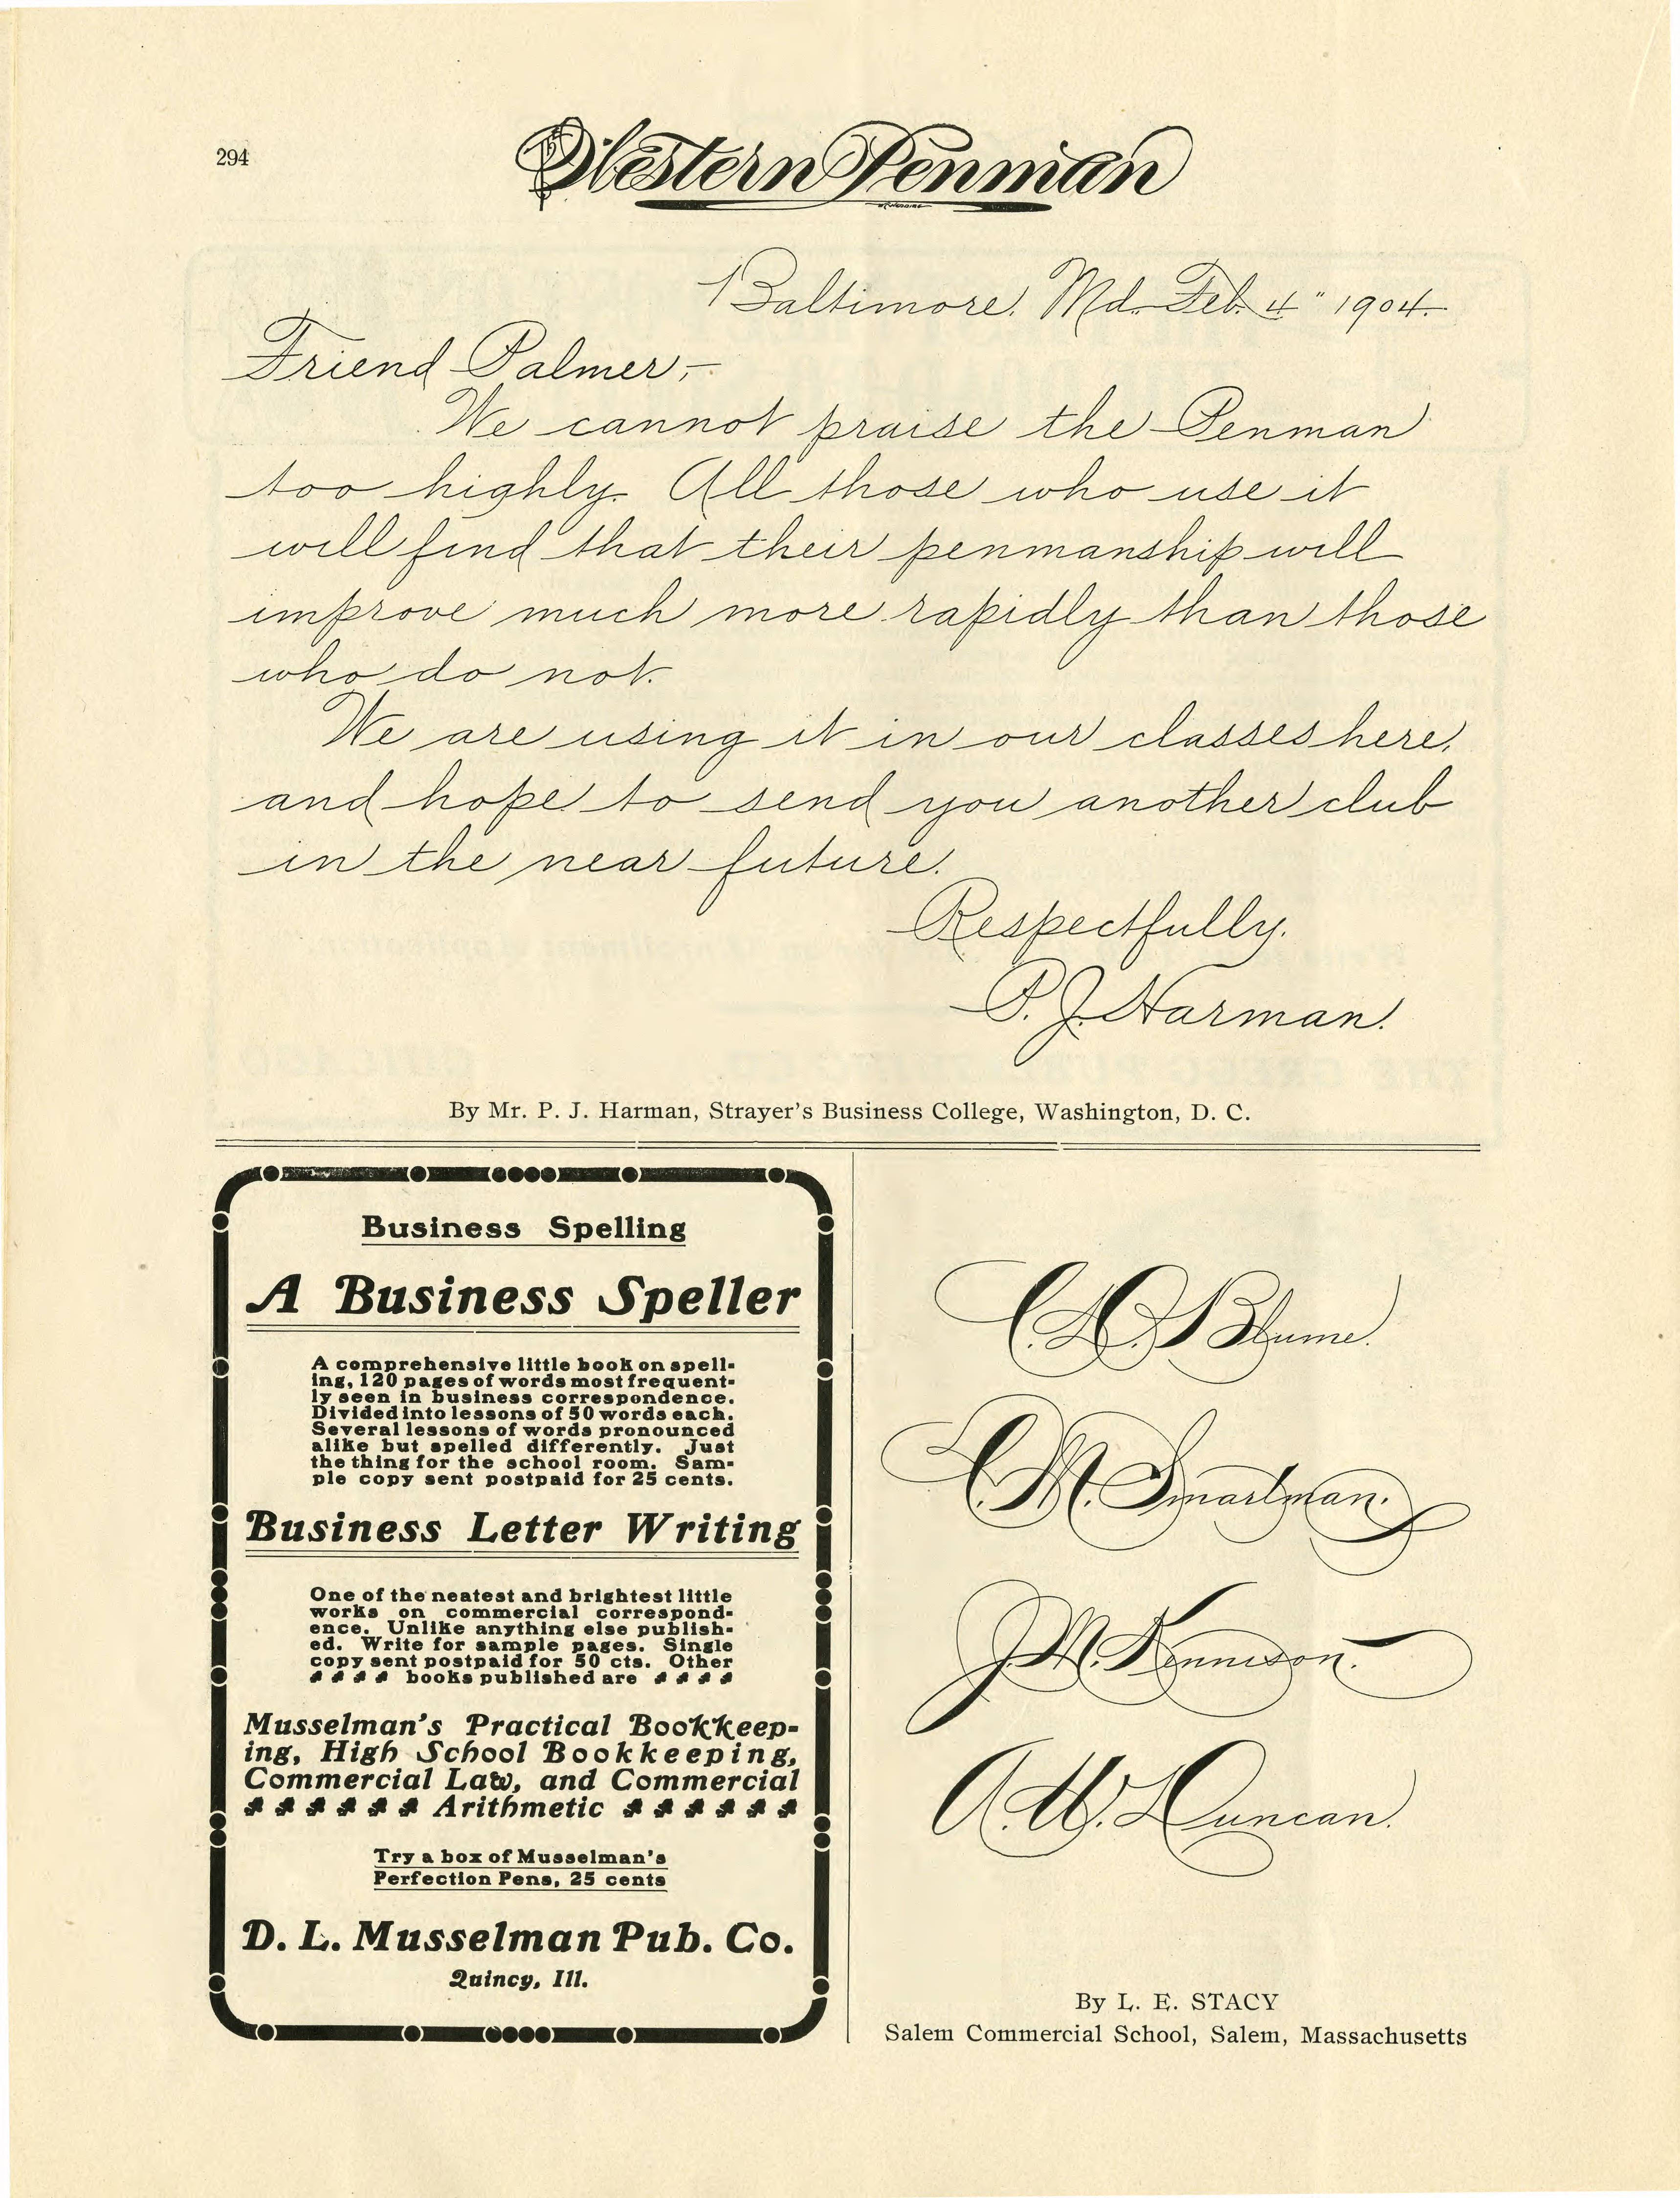 294
Western Penman
Baltimore, Md. Feb. 4" 1904.
Friend Palmer,-
We cannot praise the Penman
too highly. All those who use it
will find that their penmanship will
improve much more rapidly than those
who do not.
We are using it in our classes here,
and hope to send you another club
in the near future.
Respectfully.
P. J. Harman.
By Mr. P. J. Harman, Strayer's Business College, Washington, D. C.
Business Spelling
A Business Speller
A comprehensive little book on spell-
ing, 120 pages of words most frequent-
ly seen in business correspondence.
Divided into lessons of 50 words each.
Several lessons of words pronounced
alike but spelled differently. Just
the thing for the school room. Sam-
ple copy sent postpaid for 25 cents.
Business Letter Writing
One of the neatest and brightest little
works on commercial correspond-
ence. Unlike anything else publish-
ed. Write for sample pages. Single
copy sent postpaid for 50 cts. Other
books published are
Musselman's Practical Bookkeep-
ing, High School Bookkeeping,
Commercial Law, and Commercial
Arithmetic
Try a box of Musselman's
Perfection Pens, 25 cents
D. L. Musselman Pub. Co.
Quincy, Ill.
C. A. O. Blume.
C. M. Smartman.
J. M. Kennison.
A. W. Duncan.
By L. E. STACY
Salem Commercial School, Salem, Massachusetts